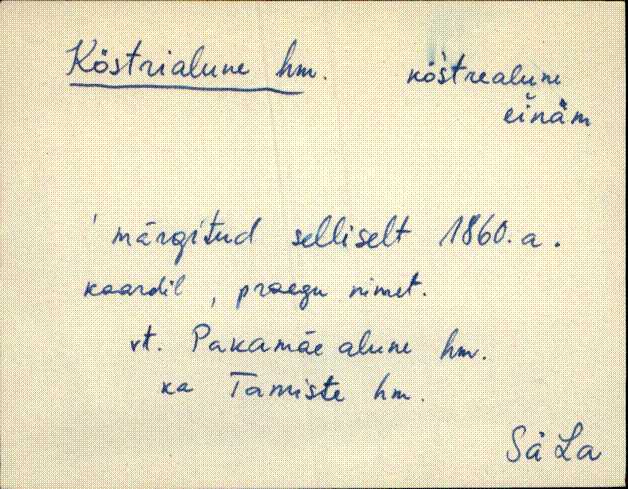 Köstrialune hm. kös̀trealune
eĭnäm
märgitud selliselt 1860. a.
kaardil, praegu nimet.
vt. Pakamäe alune hm.
ka Tamiste hm.
Sä La